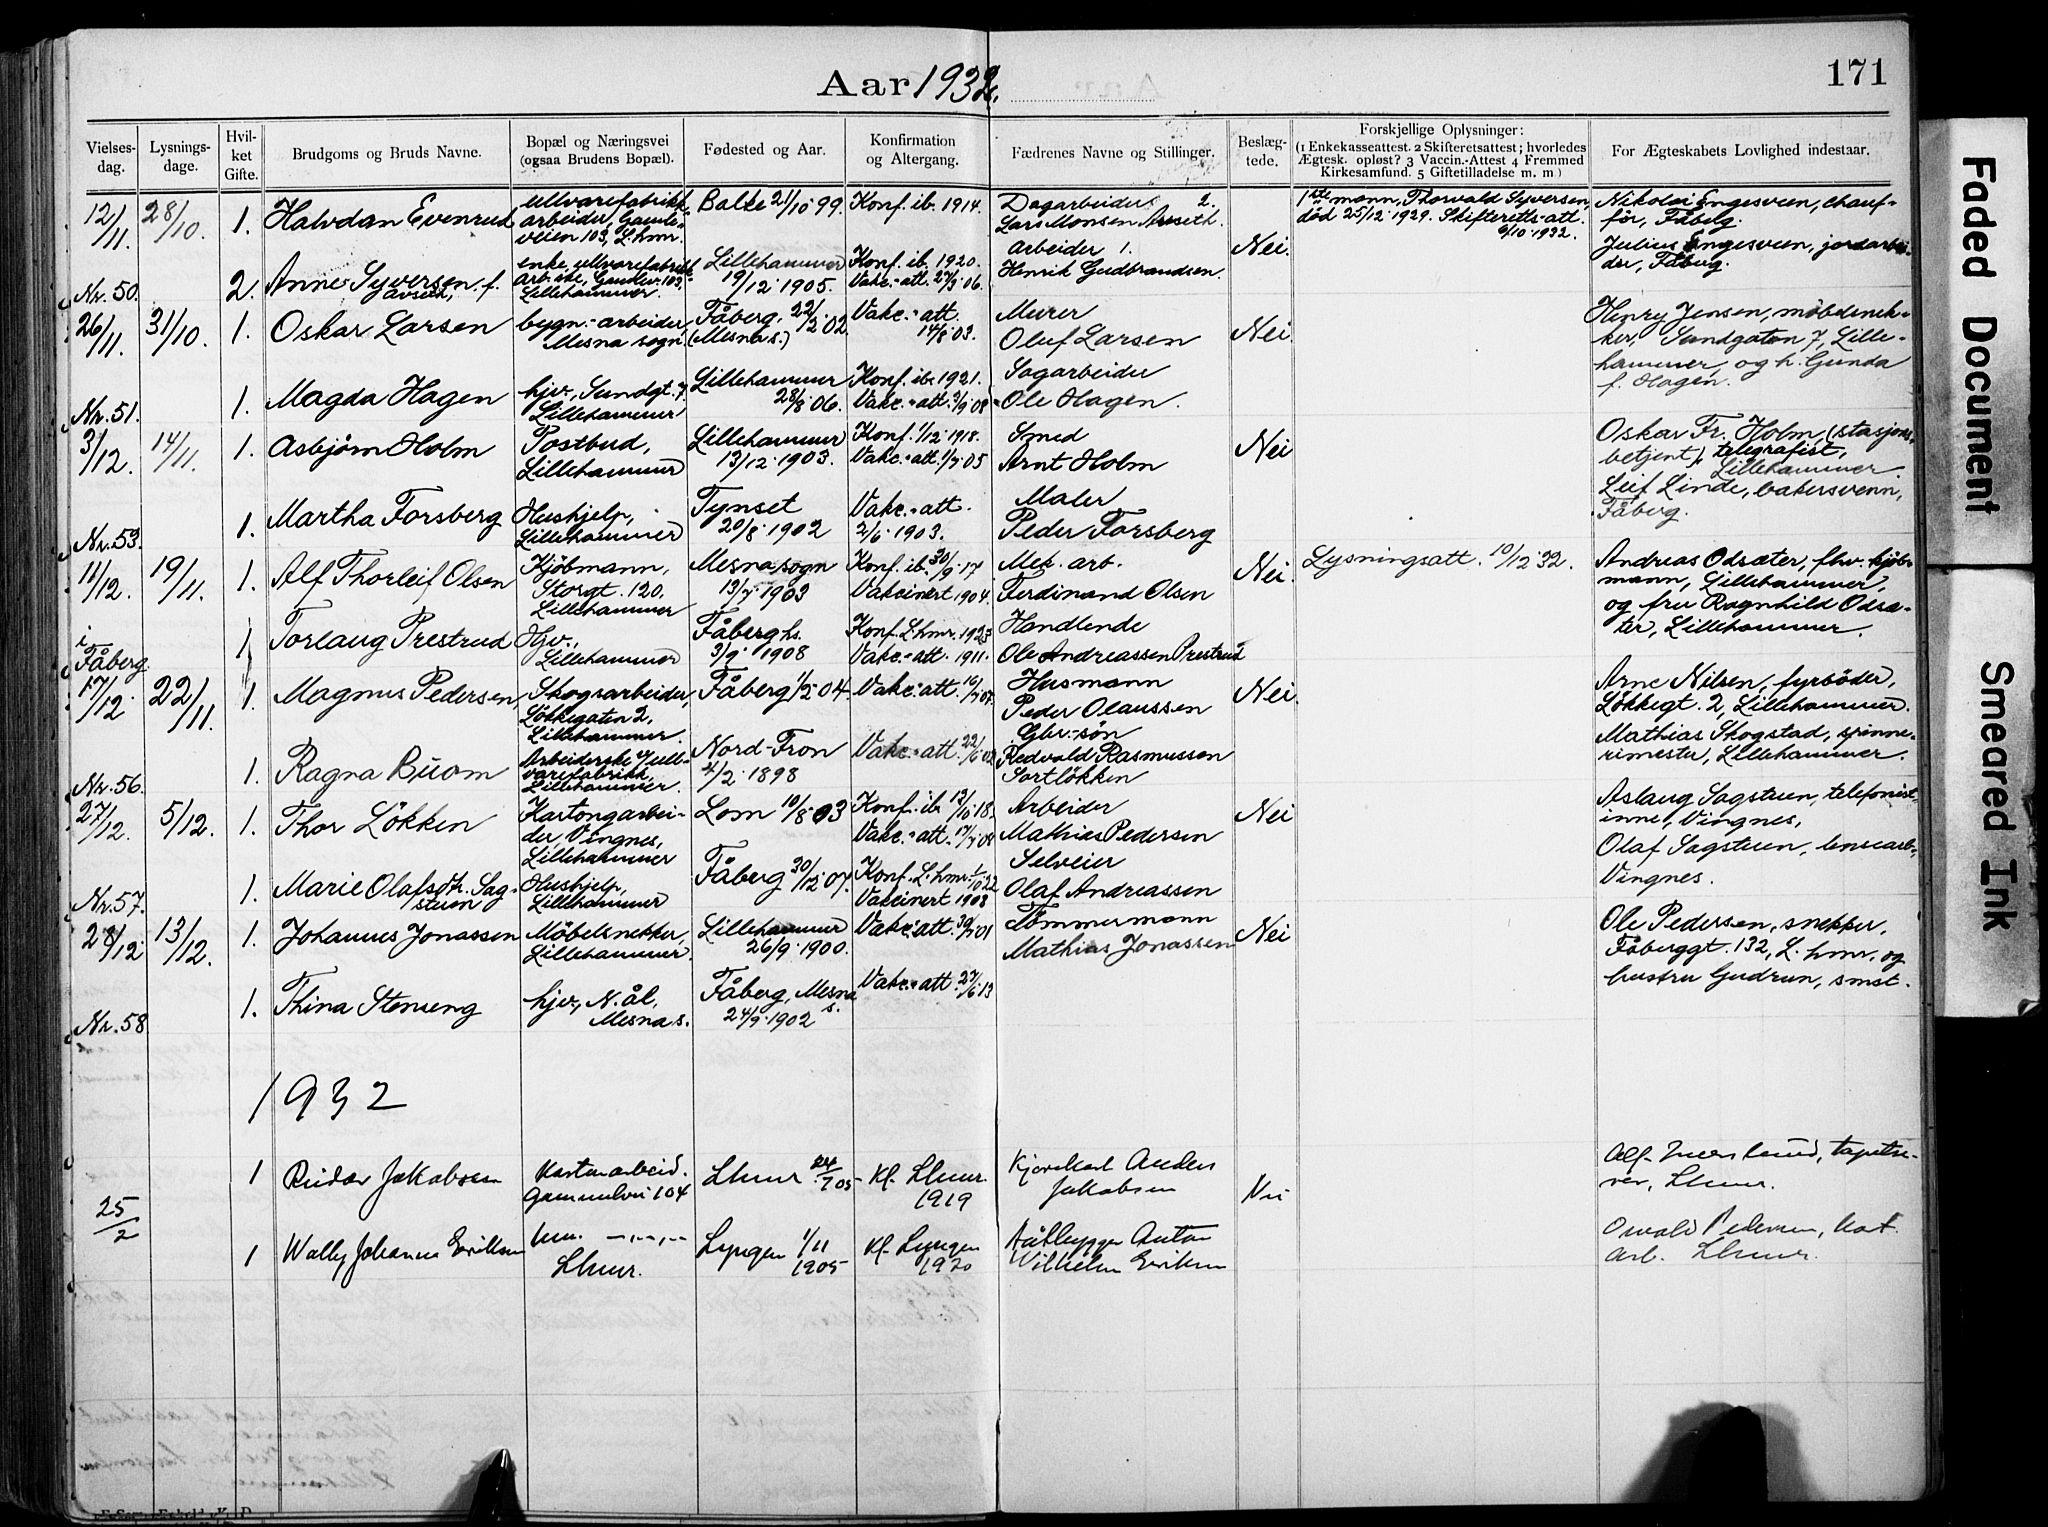 Aar 1932.
171
Vielses-
dag.
Lysnings-
dage.
Hvil-
ket
Gifte.
Brudgoms og Bruds Navne.
Bopæl og Næringsvei
(ogsaa Brudens Bopæl).
Fødested og Aar.
Konfirmation
og Altergang.
Fædrenes Navne og Stillinger.
Beslæg-
tede.
Forskjellige Oplysninger:
(1 Enkekasseattest. 2 Skifteretsattest; hvorledes
Ægtesk. opløst? 3 Vaccin.-Attest 4 Fremmed
Kirkesamfund. 5 Giftetilladelse m. m)
For Ægteskabets Lovlighed indestaar.
12/11
28/10.
1.
Halvdan Evenrud
ullvarefabrikk-
arbeider, Gamle-
veien 103, L.hmr.
Balke 21/10.99.
Konf. ib. 1914.
Dagarbeider 2.
Lars Monsen
Arbeider 1.
Henrik Gudbrandsen.
Nei.
1ste mann, Thorvald Syversen,
død 25/12.1929. Skifteretts-att.
6/10.1932.
Nikolai Engesveen, chauf-
før, Fåberg
Julius Engesveen, jordarbei-
der, Fåberg.
Nr. 50.
2.
Anne Syversen, f.
enke, ullvarefabrikk-
arb.ske, Gamlev. 103,
Lillehammer.
Lillehammer
19/12.1905.
Konf. ib. 1920.
Vakc.-att. 27/9.06.
26/11.
31/10.
1.
Oskar Larsen
bygn.-arbeider,
Mesna sogn.
Fåberg, 22/2.02
(Mesna s.)
Vakc.-att.
14/8.03.
Murer
Oluf Larsen
Nei.
Henry Jensen, møbelsnek-
ker, Sundgaten 7, Lille-
hammer, og h. Gunda
f. Hagen.
Nr. 51.
1.
Magda Hagen
hjv., Sundgt. 7.
Lillehammer
Lillehammer
28/8.06.
Konf. ib. 1921.
Vakc.-att. 3/9.08
Sagarbeider
Ole Hagen.
3/12.
14/11.
1.
Asbjørn Holm
Postbud,
Lillehammer
Lillehammer
13/12.1903.
Konf. 1/12.1918.
Vakc.-att. 1/7.05
Smed
Arnt Holm
Nei
Oskar Fr. Holm, (stasjons-
betjent), telegrafist,
Lillehammer
Leif Linde, bakersvenn,
Fåberg.
Nr. 53.
1.
Martha Forsberg
Hushjelp,
Lillehammer
Tynset
20/8.1902
Vakc.-att.
2/6.1903.
Maler
Peder Forsberg
11/12.
19/11.
1.
Alf Thorleif Olsen
Kjøbmann,
Storgt. 120,
Lillehammer
Mesna sogn
13/7.1903
Konf. ib. 30/9.17
Vakcinert 1904.
Mek. arb.
Ferdinand Olsen
Nei.
Lysningsatt. 10/12.32.
Andreas Odsæter, fhv. kjøb-
mann, Lillehammer,
og fru Ragnhild Odsæ-
ter, Lillehammer.
i
Fåberg
1
Torlaug Prestrud
Hjv.,
Lillehammer
Fåberg hs.
3/9.1908
Konf. L.hmr. 1923
Vakc.-att. 1911.
Handlende
Ole Andreassen Prestrud
17/12
22/11.
1.
Magnus Pedersen,
Skogsarbeider,
Løkkegaten 2,
Lillehammer.
Fåberg 1/5.04.
Vakc.-att. 16/7.07.
Husmann
Peder Olaussen
Nei.
Arne Nilsen, fyrbøder,
Løkkegt. 2, Lillehammer.
Mathias Skogstad, spinne-
rimester, Lillehammer.
Nr. 56.
1.
Ragna Buom
Arbeiderske v/ull-
varefabrikk,
Lillehammer.
Nord-Fron
4/2.1898
Vakc.-att. 22/6.02
Gbr.-søn
Redvald Rasmussen
Sortløkken
27/12.
5/12.
1.
Thor Løkken
Kartongarbei-
der, Vingnes,
Lillehammer
Lom 10/8.03
Konf. ib. 13/10.18.
Vakc.-att. 17/7.08
Arbeider
Mathias Pedersen
Nei
Aslaug Sagstuen, telefonist-
inne, Vingnes,
Olaf Sagstuen, lensearb.,
Vingnes.
Nr. 57.
1.
Marie Olafsdtr. Sag-
stuen
Hushjelp,
Lillehammer
Fåberg 30/12.07.
Konf. L.hmr. 1/10.22
Vakcinert 1908
Selveier
Olaf Andreassen
28/12
13/12.
1.
Johannes Jonassen
Møbelsnekker,
Lillehammer.
Lillehammer
26/9.1900.
Vakc.-att. 30/7.01
Tømmermann
Mathias Jonassen
Nei
Ole Pedersen, snekker,
Fåberggt. 132, L.hmr. og
hustru Gudrun, smst.
Nr. 58.
1.
Thina Stenseng
hjv., N. ål,
Mesna s.
Fåberg, Mesna
s.
24/9.1902
Vakc.-att. 27/6.13
1932
1
Reidar Jakobsen
Kartonarbeid.
Gammelvei 104
Lhmr 24/7 05
Kf. Lhmr.
1919
Kjørekarl Anders
Jakobsen
Nei
Alf, tapetse-
rer, Lhmr.
25/2
1
Wally Johanne Eriksen
Lhmr.
Lyngen 1/11
1905
Kf. Lyngen
1920
Båtbygger Anton
Wilhelm Eriksen
Osvald Pedersen, kart.
arb. Lhmr.
Faded Document
Smeared Ink